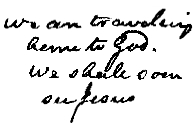 we are traveling
home to God.
we shall soon
see Jesus